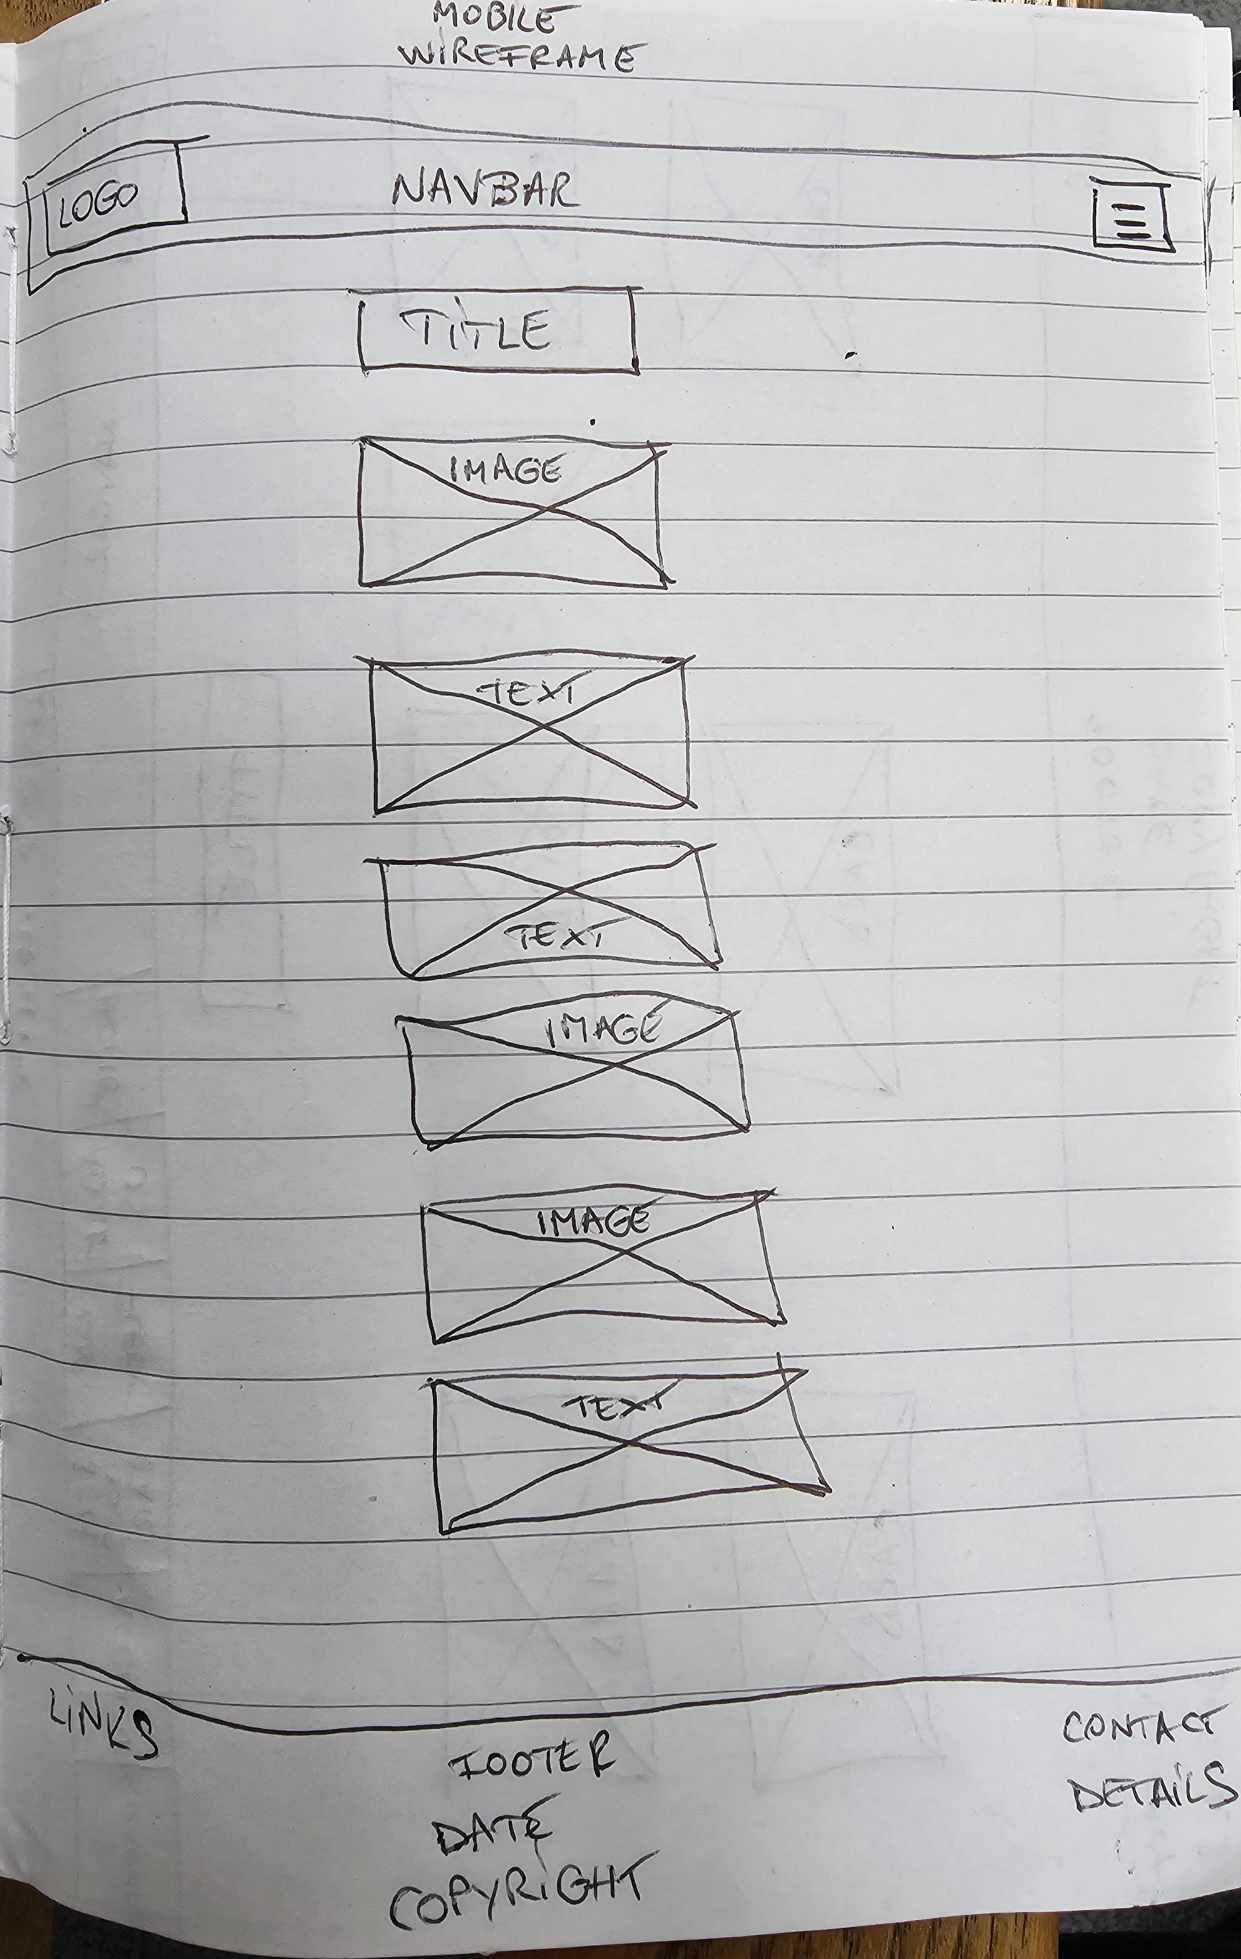 MOBILE
WIREFRAME
LOGO
NAVBAR
TITLE
IMAGE
TEXT
TEXT
IMAGE
IMAGE
TEXT
LINKS
FOOTER
DATE
COPYRIGHT
CONTACT
DETAILS